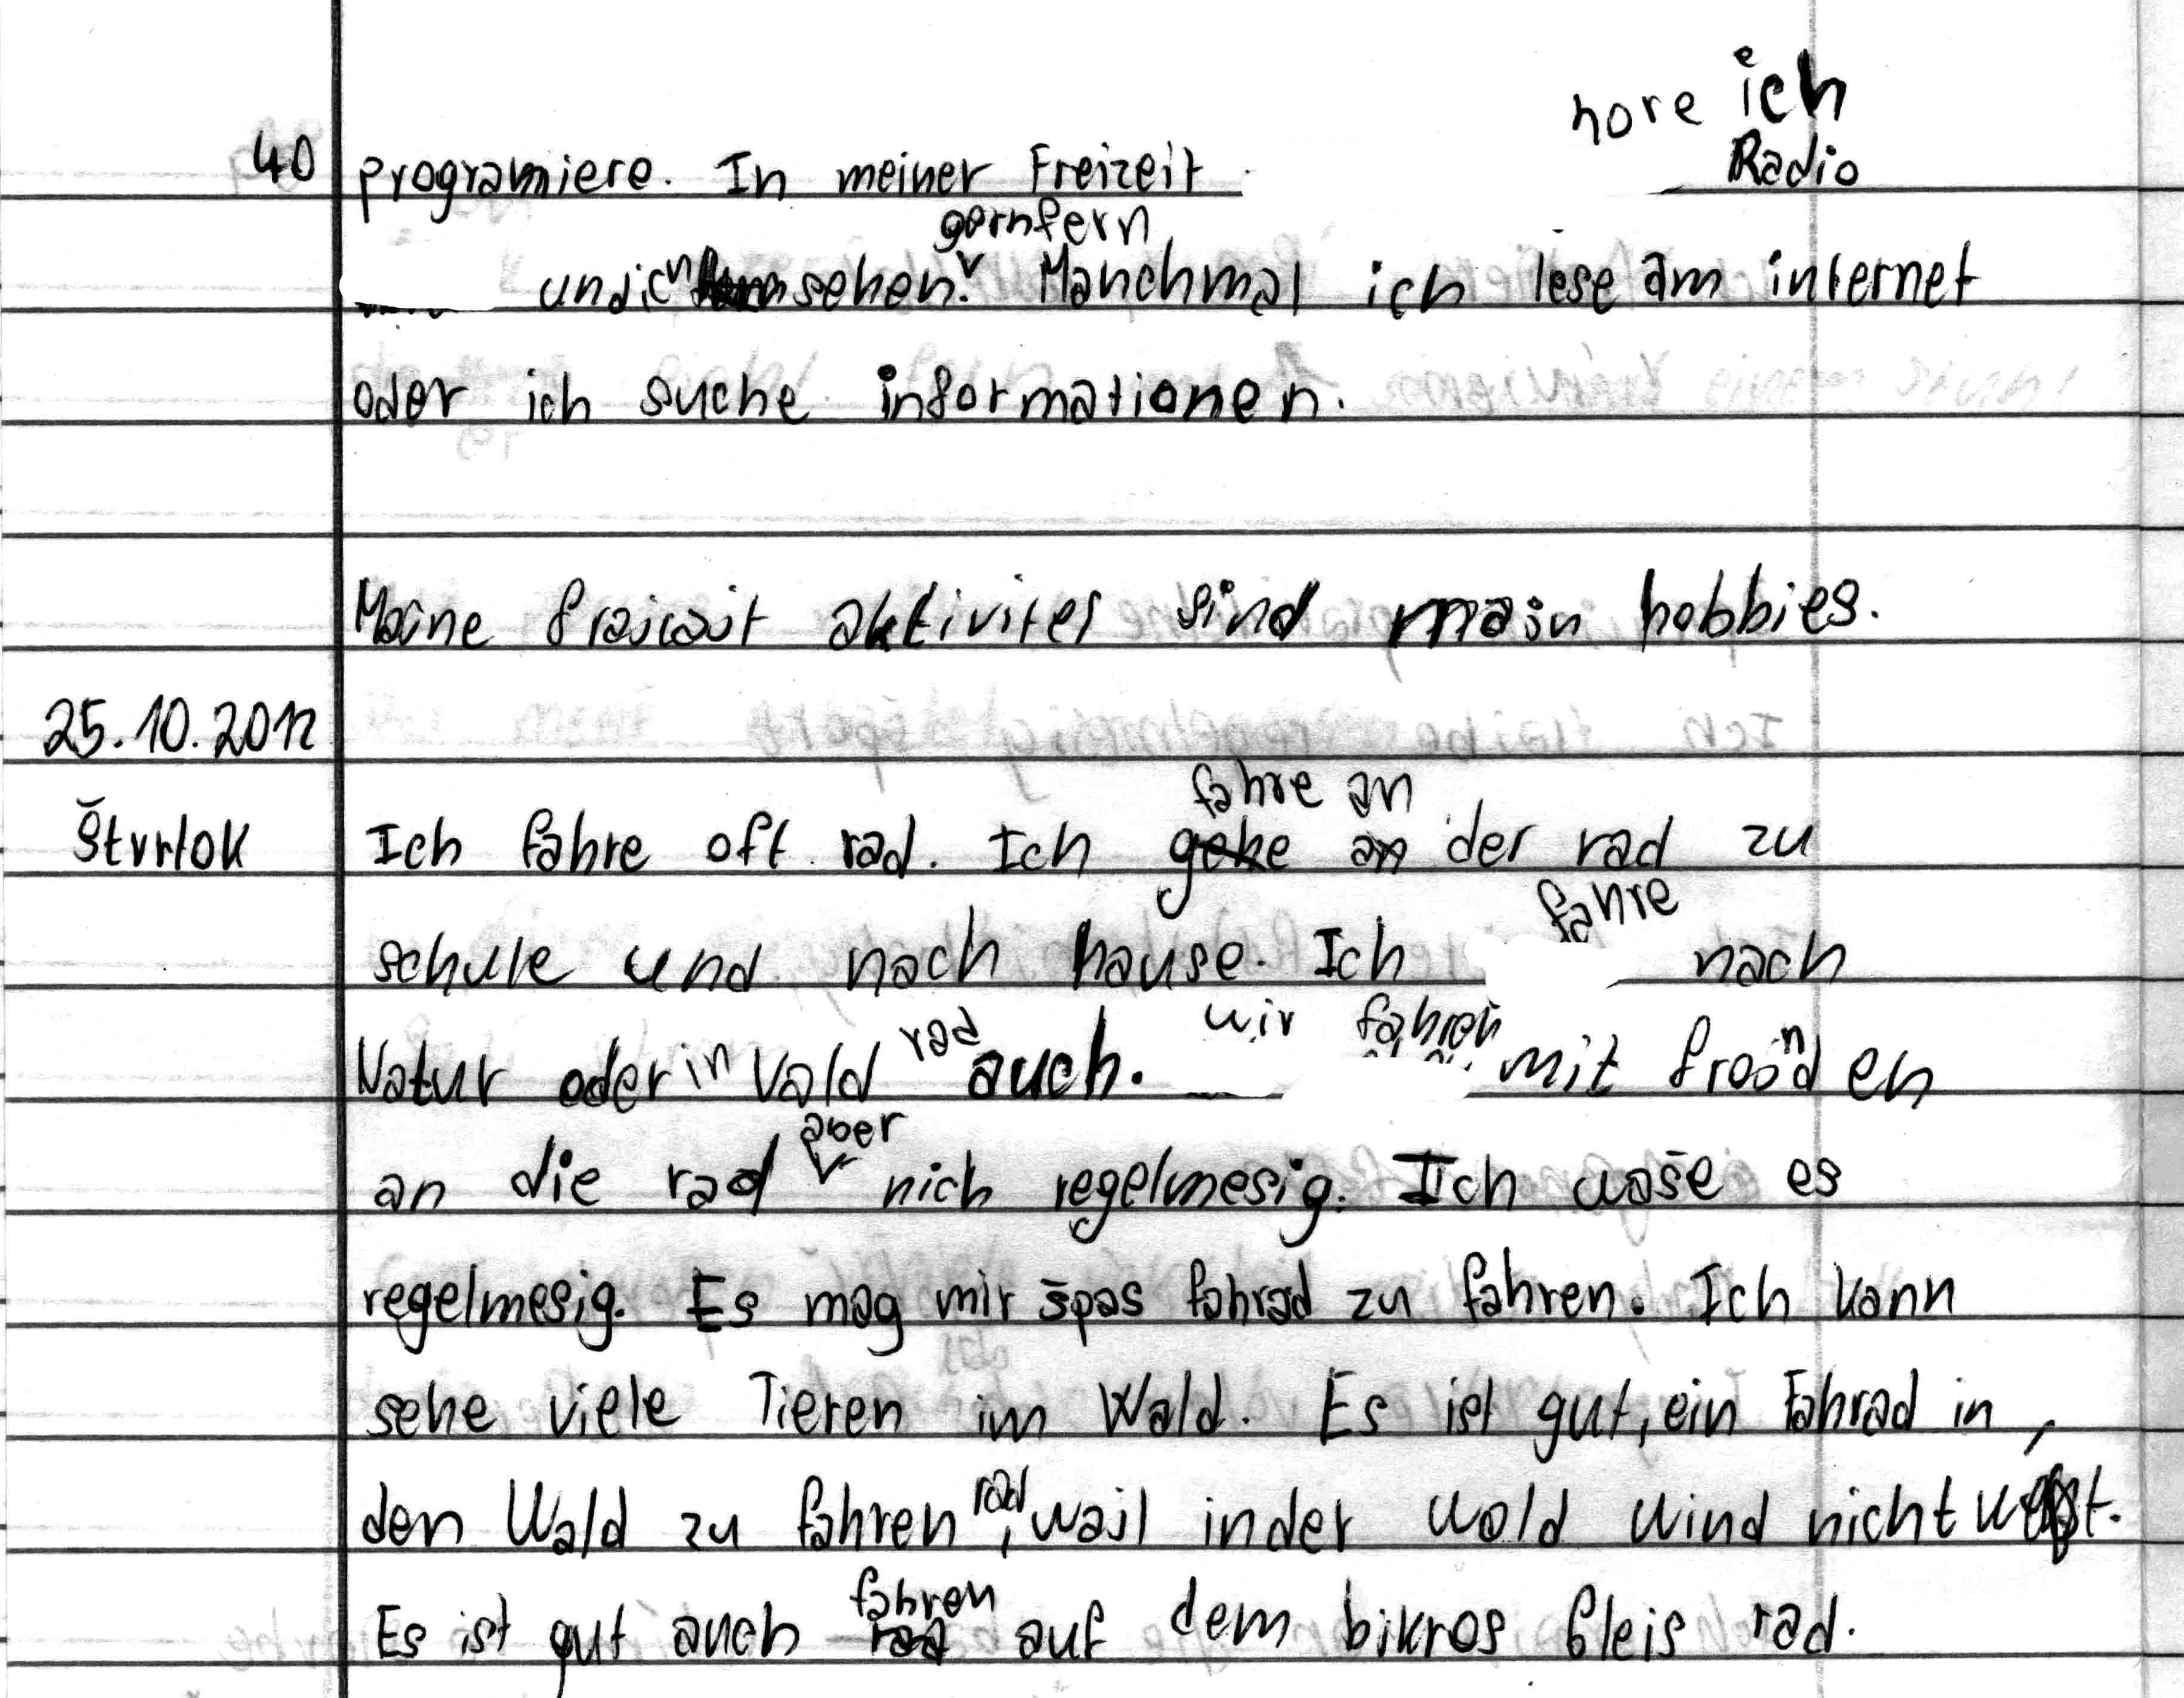 hore ich
40 programiere. In meiner Freizeit Radio
gernfern
und ich sehen. Manchmal ich lese am internet
oder ich suche informationen.
Meine fraizait aktivitet sind main hobbies.
25.10.2012
fahre an
Štvrtok Ich fahre oft rad. Ich gehe an der rad zu
fahre
schule und nach hause. Ich nach
rad wir fahren
Natur oder in Vald auch. mit froinden
aber
an die rad nich regelmesig. Ich waše es
regelmesig. Es mag mir špas fahrad zu fahren. Ich kann
sehe viele Tieren im Wald. Es ist gut, ein Fahrad in
rad
den Wald zu fahren, wail in der wald wind nicht
fahren
Es ist gut auch rad auf dem bikros fleis rad.